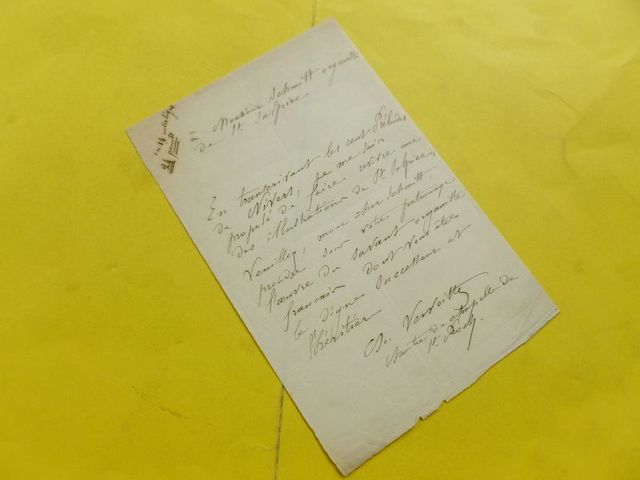 à Monsieur Schmitt organiste
de St Sulpice
En transcrivant les cent Préludes
de Nivers, je me suis
proposé de faire revivre une
des illustrations de St Sulpice,
Veuillez, mon cher Schmitt,
prendre sous votre patronage
l'œuvre du savant organiste
français dont vous êtes
le digne successeur et
l'héritier
Ch. Vervoitte
Maître de chapelle de
St Roch